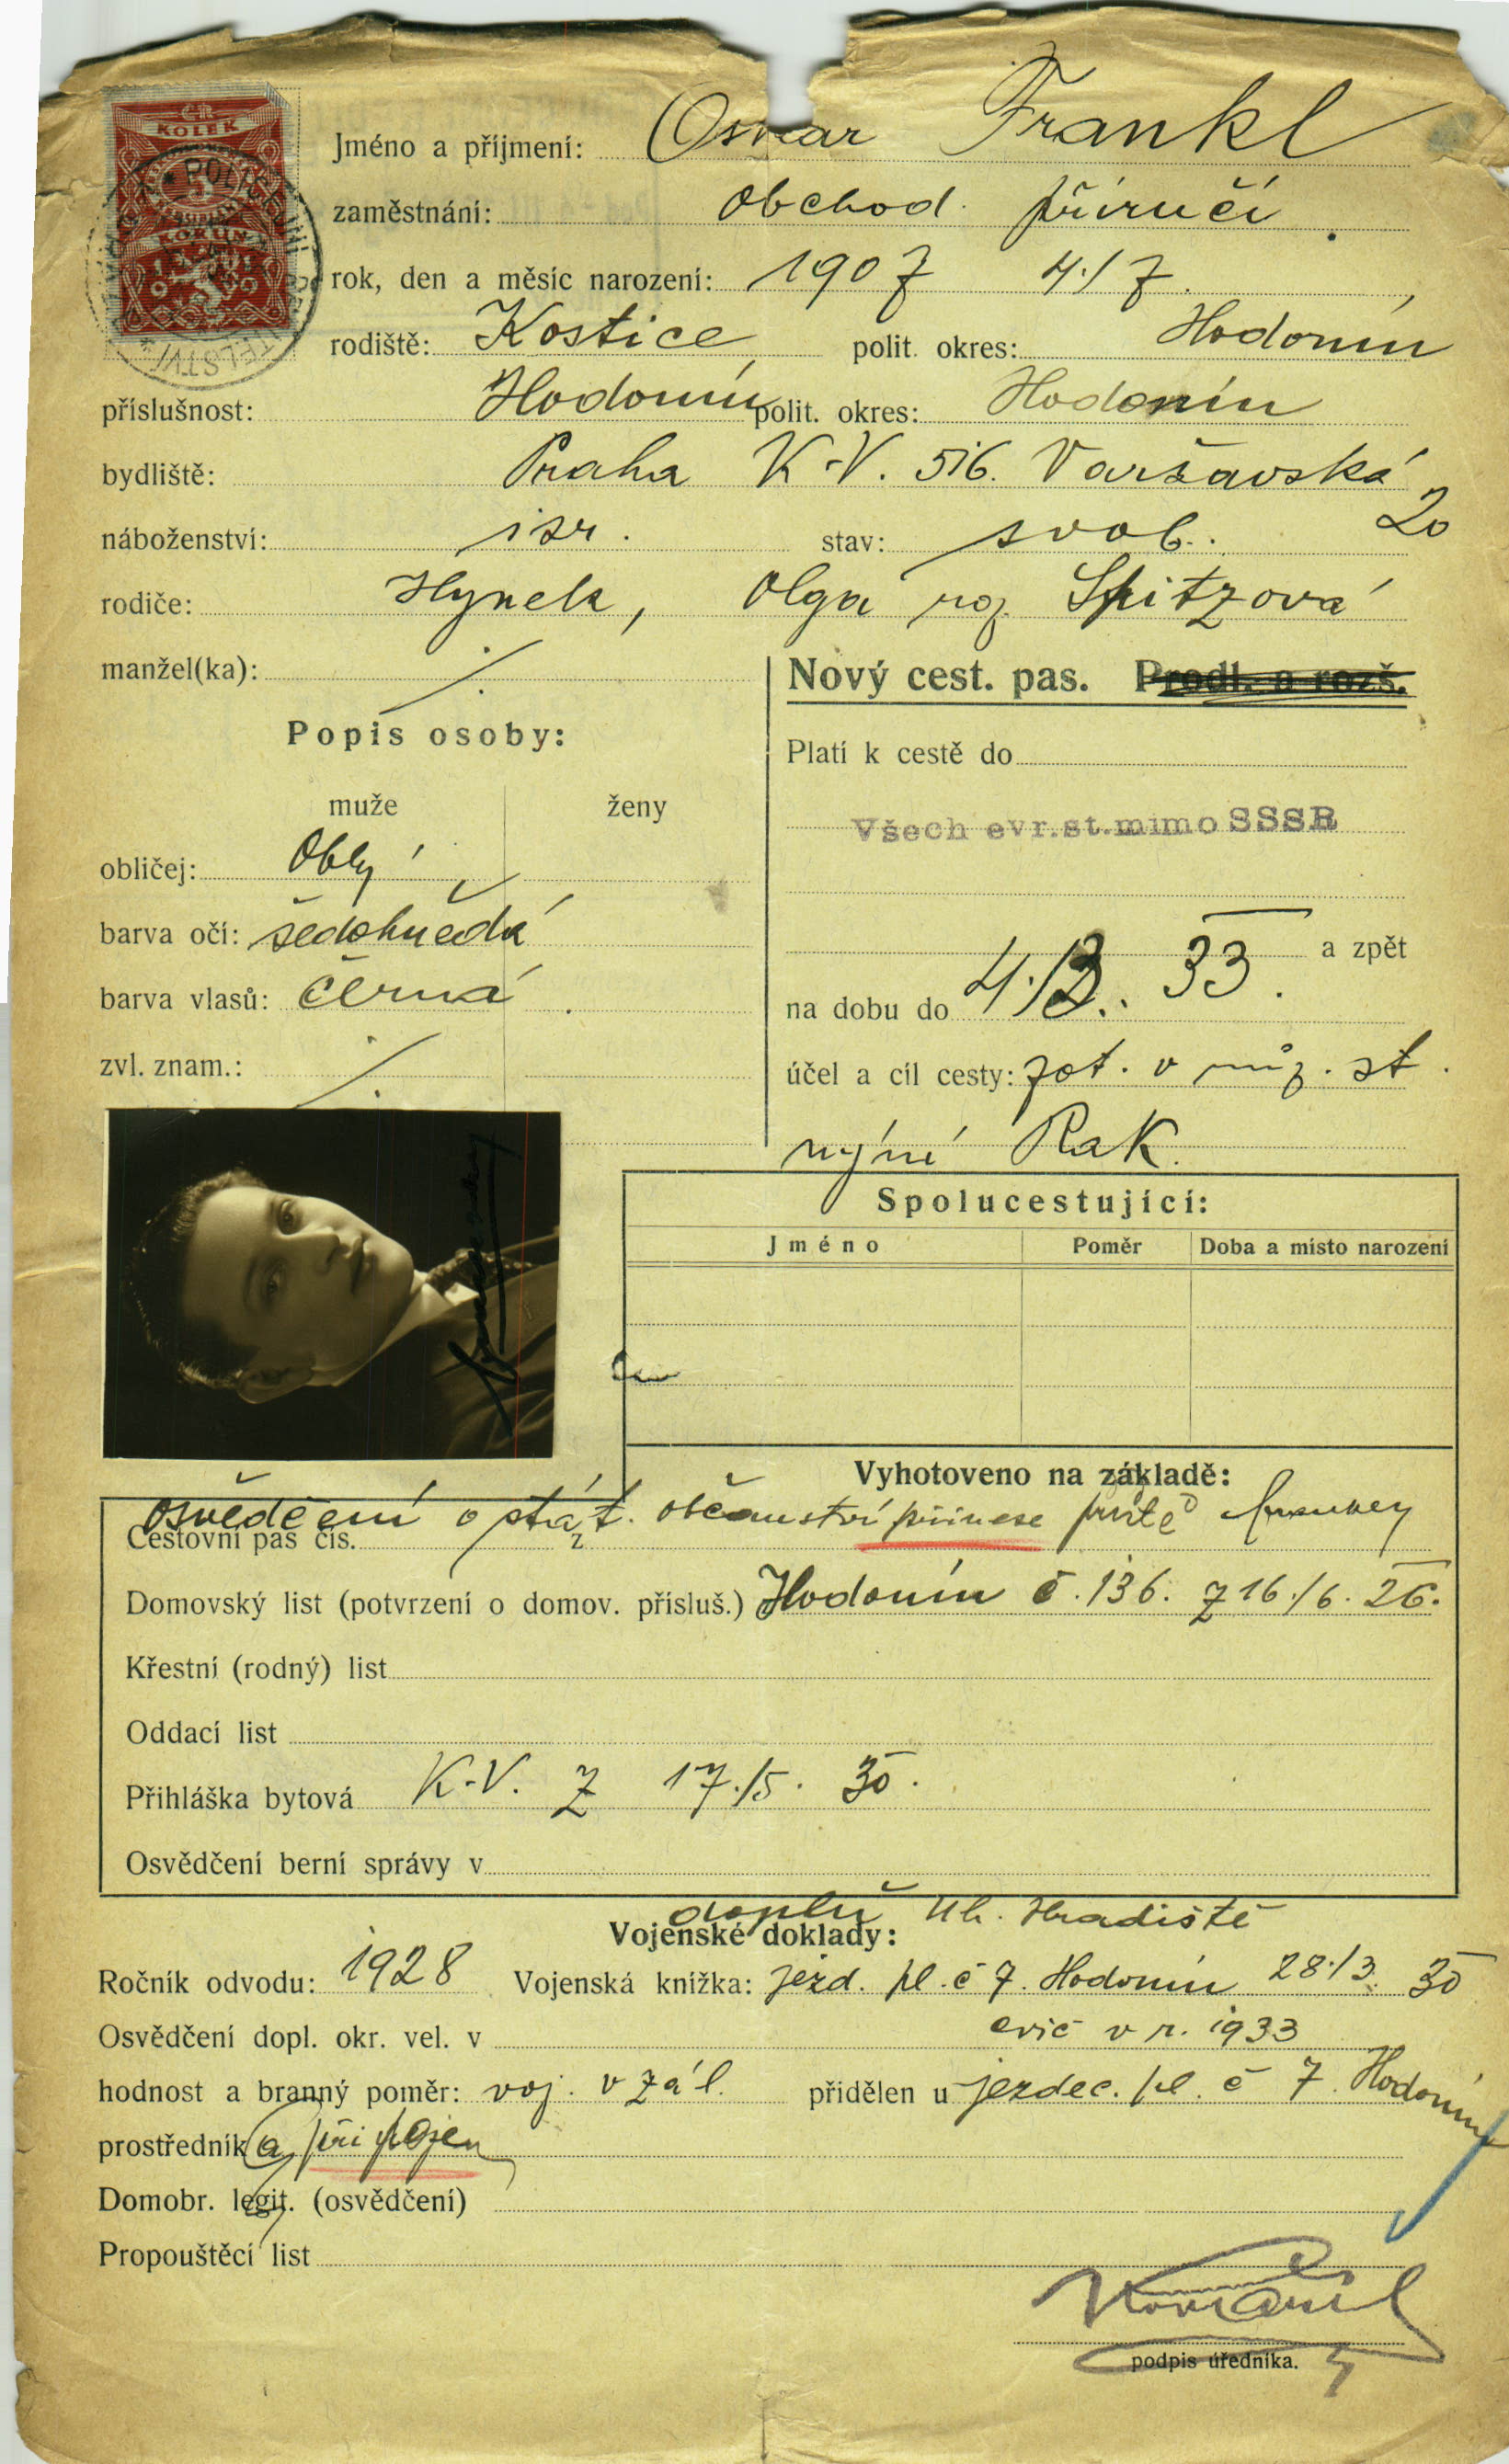 ČR
KOLEK
KORUN
1919
* POLICEJNÍ
ŘEDITELSTVÍ *
Jméno a příjmení: Oskar Frankl
zaměstnání: obchod. příručí
rok, den a měsíc narození: 1907 4./7.
rodiště: Kostice polit. okres: Hodonín
příslušnost: Hodonín polit. okres: Hodonín
bydliště: Praha K-V. 516. Varšavská
20
náboženství: isr. stav: svob.
rodiče: Hynek, Olga roz. Spitzová
manžel(ka): /.
Nový cest. pas. Prodl. a rozš.
Popis osoby:
muže ženy
obličej: oblý
barva očí: šedohnědá
barva vlasů: černá
zvl. znam.: /.
Platí k cestě do
Všech evr.st.mimo SSSR
a zpět
na dobu do 4./3. 33.
účel a cíl cesty: zot. v růz. st.
nýní Rak.
Spolucestující:
Jméno Poměr Doba a místo narození
Vyhotoveno na základě:
osvědčení o stát. občanství přinese příště
Cestovní pas čís. z
Domovský list (potvrzení o domov. přísluš.) Hodonín č. 136. z 16./6. 26.
Křestní (rodný) list
Oddací list
Přihláška bytová K.-V. z 17./5. 30.
Osvědčení berní správy v
doplň Uh. Hradiště
Vojenské doklady:
Ročník odvodu: 1928 Vojenská knížka: jezd. pl. č 7. Hodonín 28./3. 30
Osvědčení dopl. okr. vel. v cvič v r. 1933
hodnost a branný poměr: voj. v zál. přidělen u jezdec. pl. č 7. Hodonín
prostředník a připojen
Domobr. legit. (osvědčení)
Propouštěcí list
podpis úředníka.